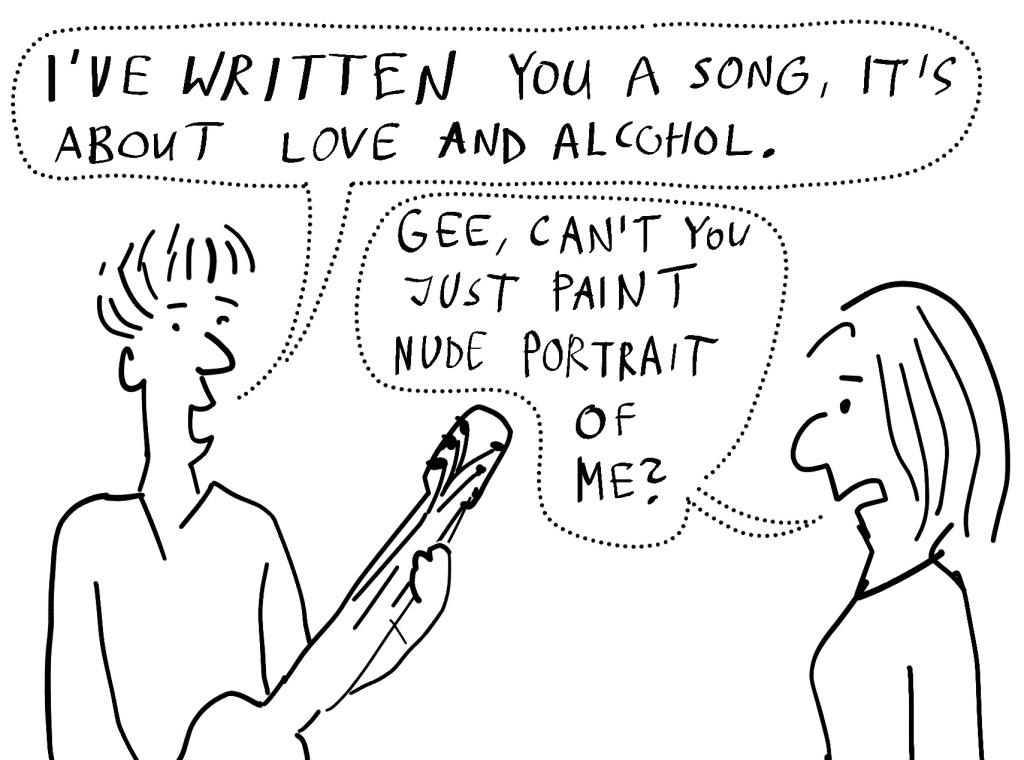 I'VE WRITTEN YOU A SONG, IT'S
ABOUT LOVE AND ALCOHOL.
GEE, CAN'T YOU
JUST PAINT
NUDE PORTRAIT
OF
ME?